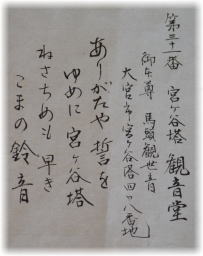 第三十一番 宮ヶ谷塔 観音堂
御本尊 馬頭観世音
大宮市宮ヶ谷塔四ノ八番地
ありがたや誓を
ゆめに宮ヶ谷塔
ねさちめも早き
こまの鈴音